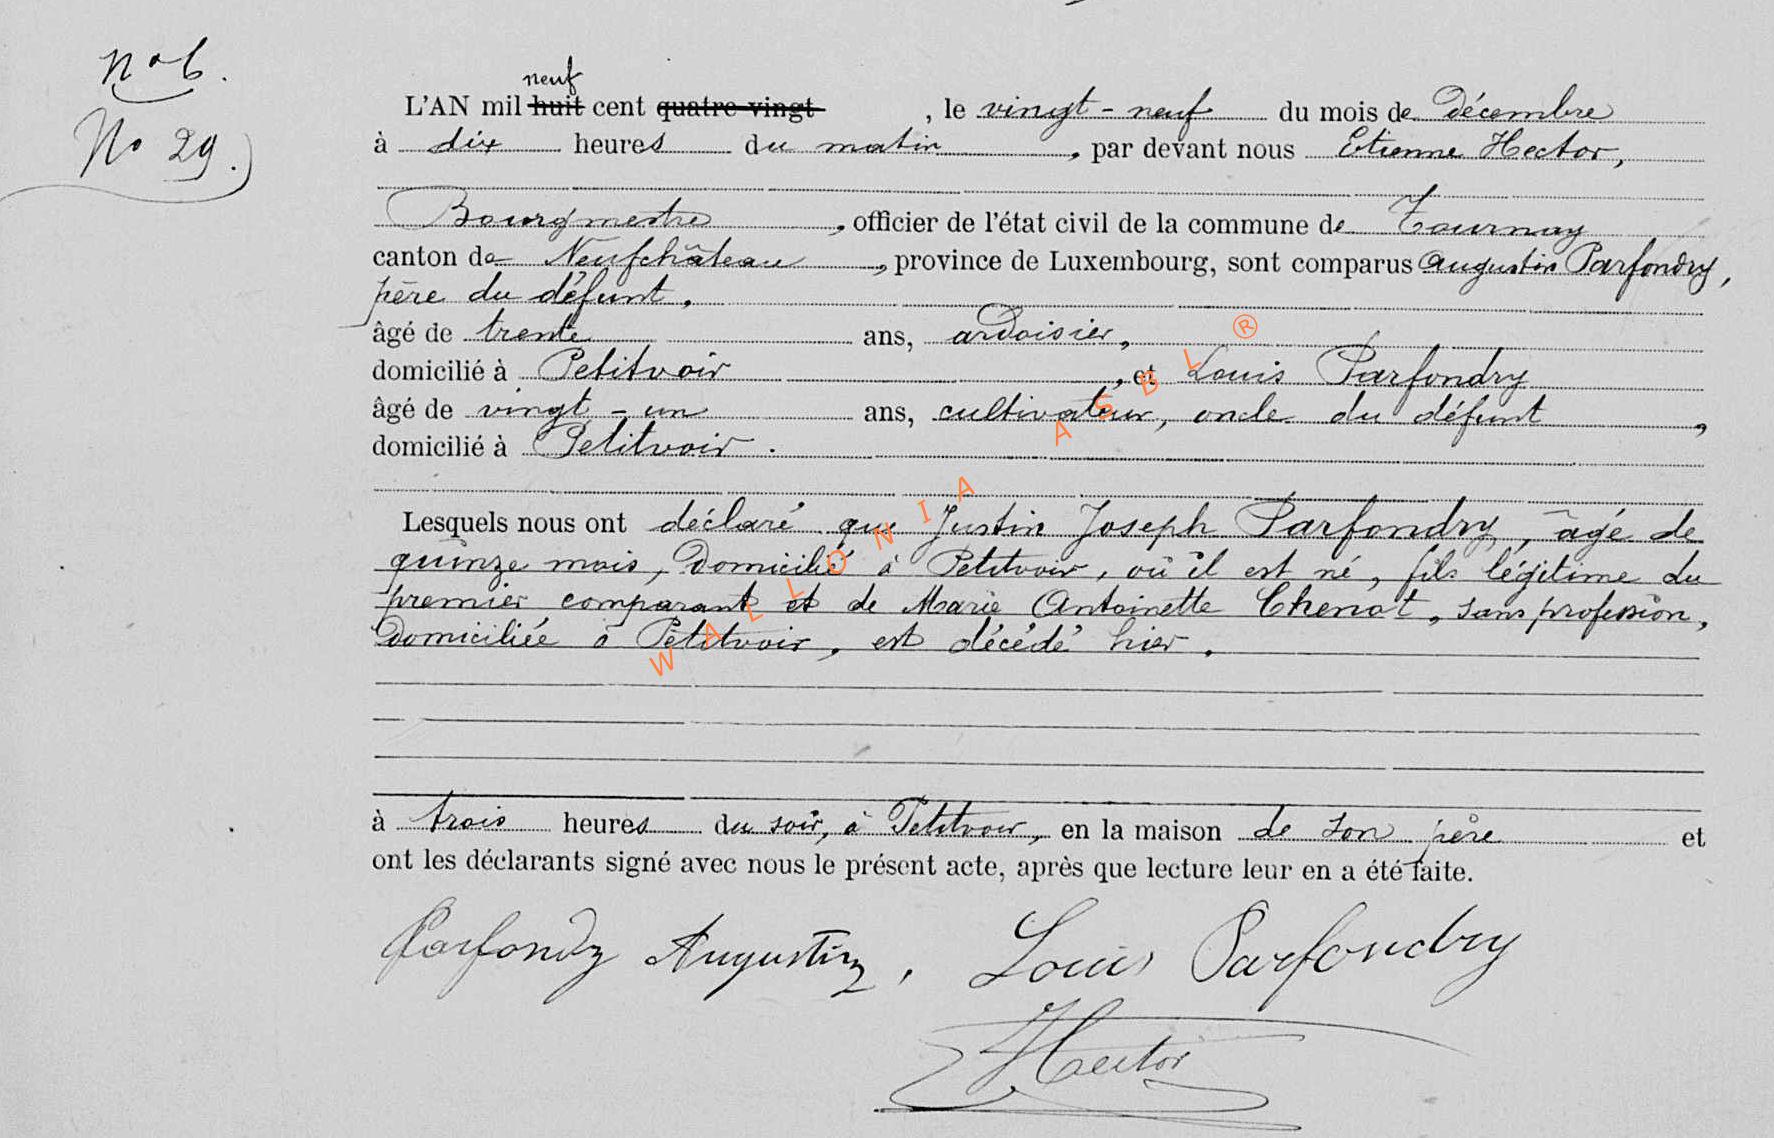 n° 6.
No 29.)
neuf
L'AN mil huit cent quatre-vingt , le vingt-neuf du mois de Décembre
à dix heures du matin , par devant nous Etienne Hector,
Bourgmestre , officier de l'état civil de la commune de Tournay
canton de Neufchâteau , province de Luxembourg, sont comparus Augustin Parfondry,
père du défunt,
âgé de trente ans, ardoisier,
domicilié à Petitvoir , et Louis Parfondry
âgé de vingt-un ans, cultivateur, oncle du défunt ,
domicilié à Petitvoir.
Lesquels nous ont déclaré que Justin Joseph Parfondry, âgé de
quinze mois, domicilié à Petitvoir, où il est né, fils légitime du
premier comparant et de Marie Antoinette Chenot, sans profession,
domiciliée à Petitvoir, est décédé hier,
à trois heures du soir, à Petitvoir, en la maison de son père et
ont les déclarants signé avec nous le présent acte, après que lecture leur en a été faite.
Parfondry Augustin, Louis Parfondry
Hector
WALLONIA ASBL ®